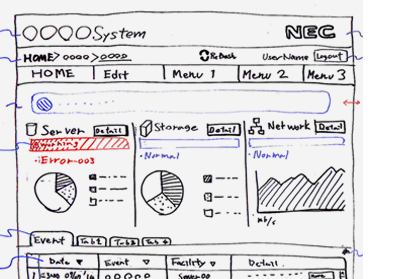 OOOOSystem NEC
HOME> oooo> oooo Refresh UserName Logout
HOME Edit Menu 1 Menu 2 Menu 3
Server Detail Storage Detail Network Detail
Warning
・Error-003 ・Normal ・Normal
Mb/s
Event Tab2 Tab3 Tab4
Date ▽ Event ▽ Facility ▽ Detail